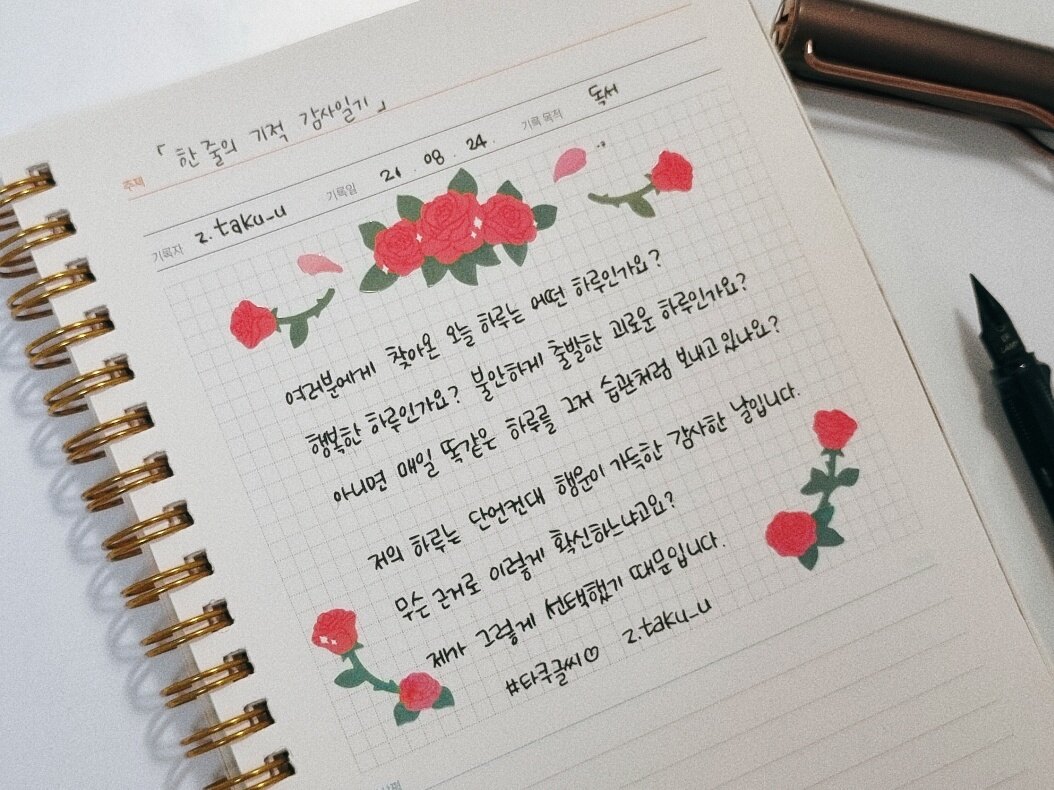 「한 줄의 기적 감사일기」
주제
기록자 z.taku_u 기록일 21 . 08 . 24 . 기록 목적 독서
여러분에게 찾아온 오늘 하루는 어떤 하루인가요?
행복한 하루인가요? 불안하게 출발한 괴로운 하루인가요?
아니면 매일 똑같은 하루를 그저 습관처럼 보내고 있나요?
저의 하루는 단언컨대 행운이 가득한 감사한 날입니다.
무슨 근거로 이렇게 확신하느냐고요?
제가 그렇게 선택했기 때문입니다.
#타쿠글씨♡ z.taku_u